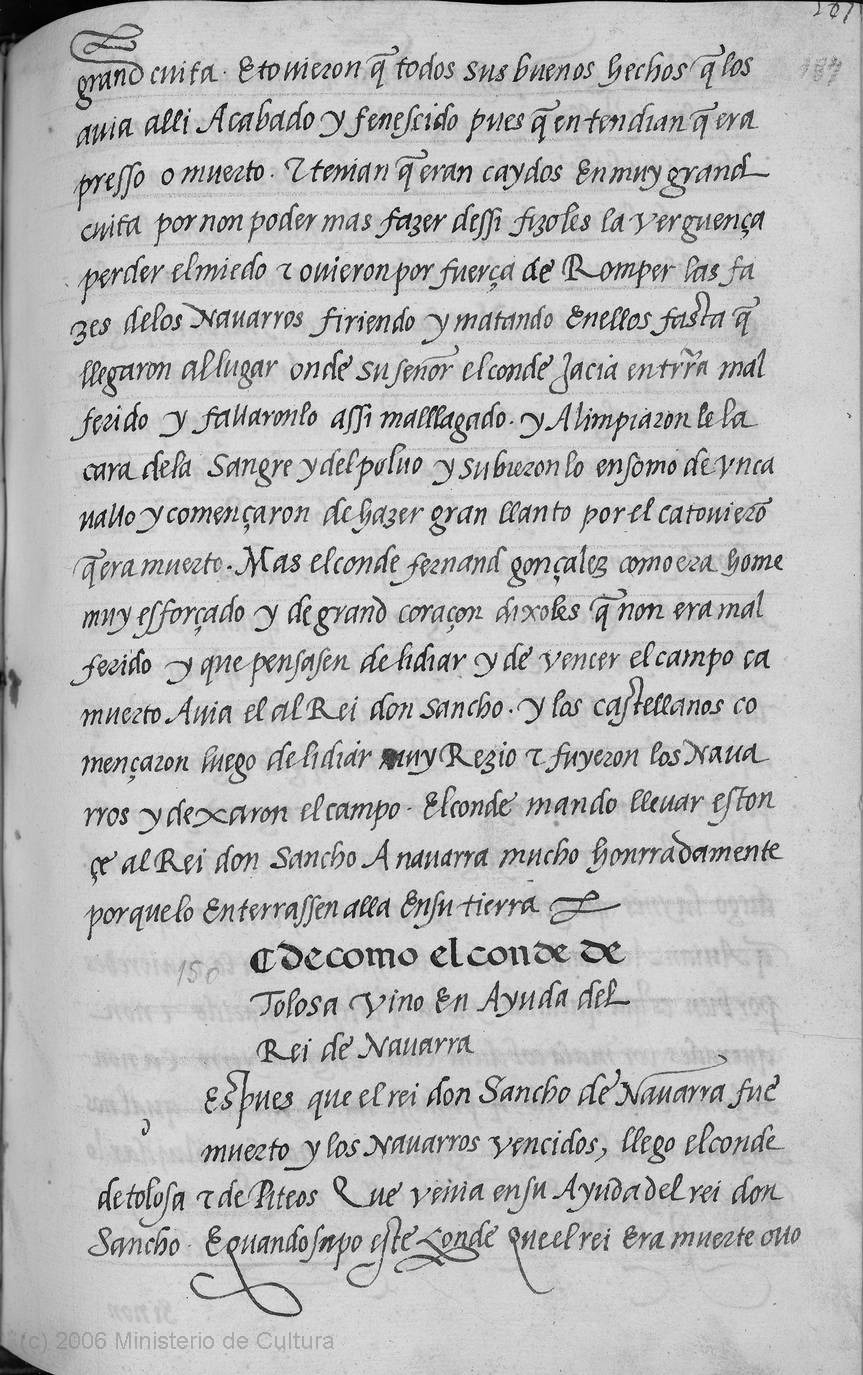 187
grand cuita. E tovieron q̃ todos sus buenos hechos q̃ los
avia alli Acabado y fenescido pues q̃ entendian q̃ era
presso o muerto. τ tenian q̃ eran caydos En muy grand
cuita por non poder mas fazer dessi fizoles la verguença
perder el miedo τ ovieron por fuerça de Romper las fa
zes delos Navarros firiendo y matando Enellos fasta q̃
llegaron al lugar onde su señor el conde Jacia en trr̃a mal
ferido y fallaronlo assi malllagado. y Alimpiaron le la
cara dela Sangre y del polvo y subieron lo ensomo de vn ca
vallo y començaron de hazer gran llanto por el ca tovierõ
q̃ era muerto. Mas el conde fernand gonçalez como era home
muy esforçado y de grand coraçon dixoles q̃ non era mal
ferido y que pensasen de lidiar y de vencer el campo ca
muerto Avia el al Rei don sancho. y los castellanos co
mençaron luego de lidiar muy Rezio τ fuyeron los Nava
rros y dexaron el campo. El conde mando llevar eston
çe al Rei don Sancho A navarra mucho honrradamente
por que lo Enterrassen alla Ensu tierra
150
¶ de como el conde de
Tolosa vino En Ayuda del
Rei de Navarra
Espues que el rei don Sancho de Navarra fue
d
muerto y los Navarros vencidos, llego el conde
de tolosa τ de Piteos Que venia ensu Ayuda del rei don
Sancho. E quando supo este Conde Que el rei Era muerte ovo
(c) 2006 Ministerio de Cultura